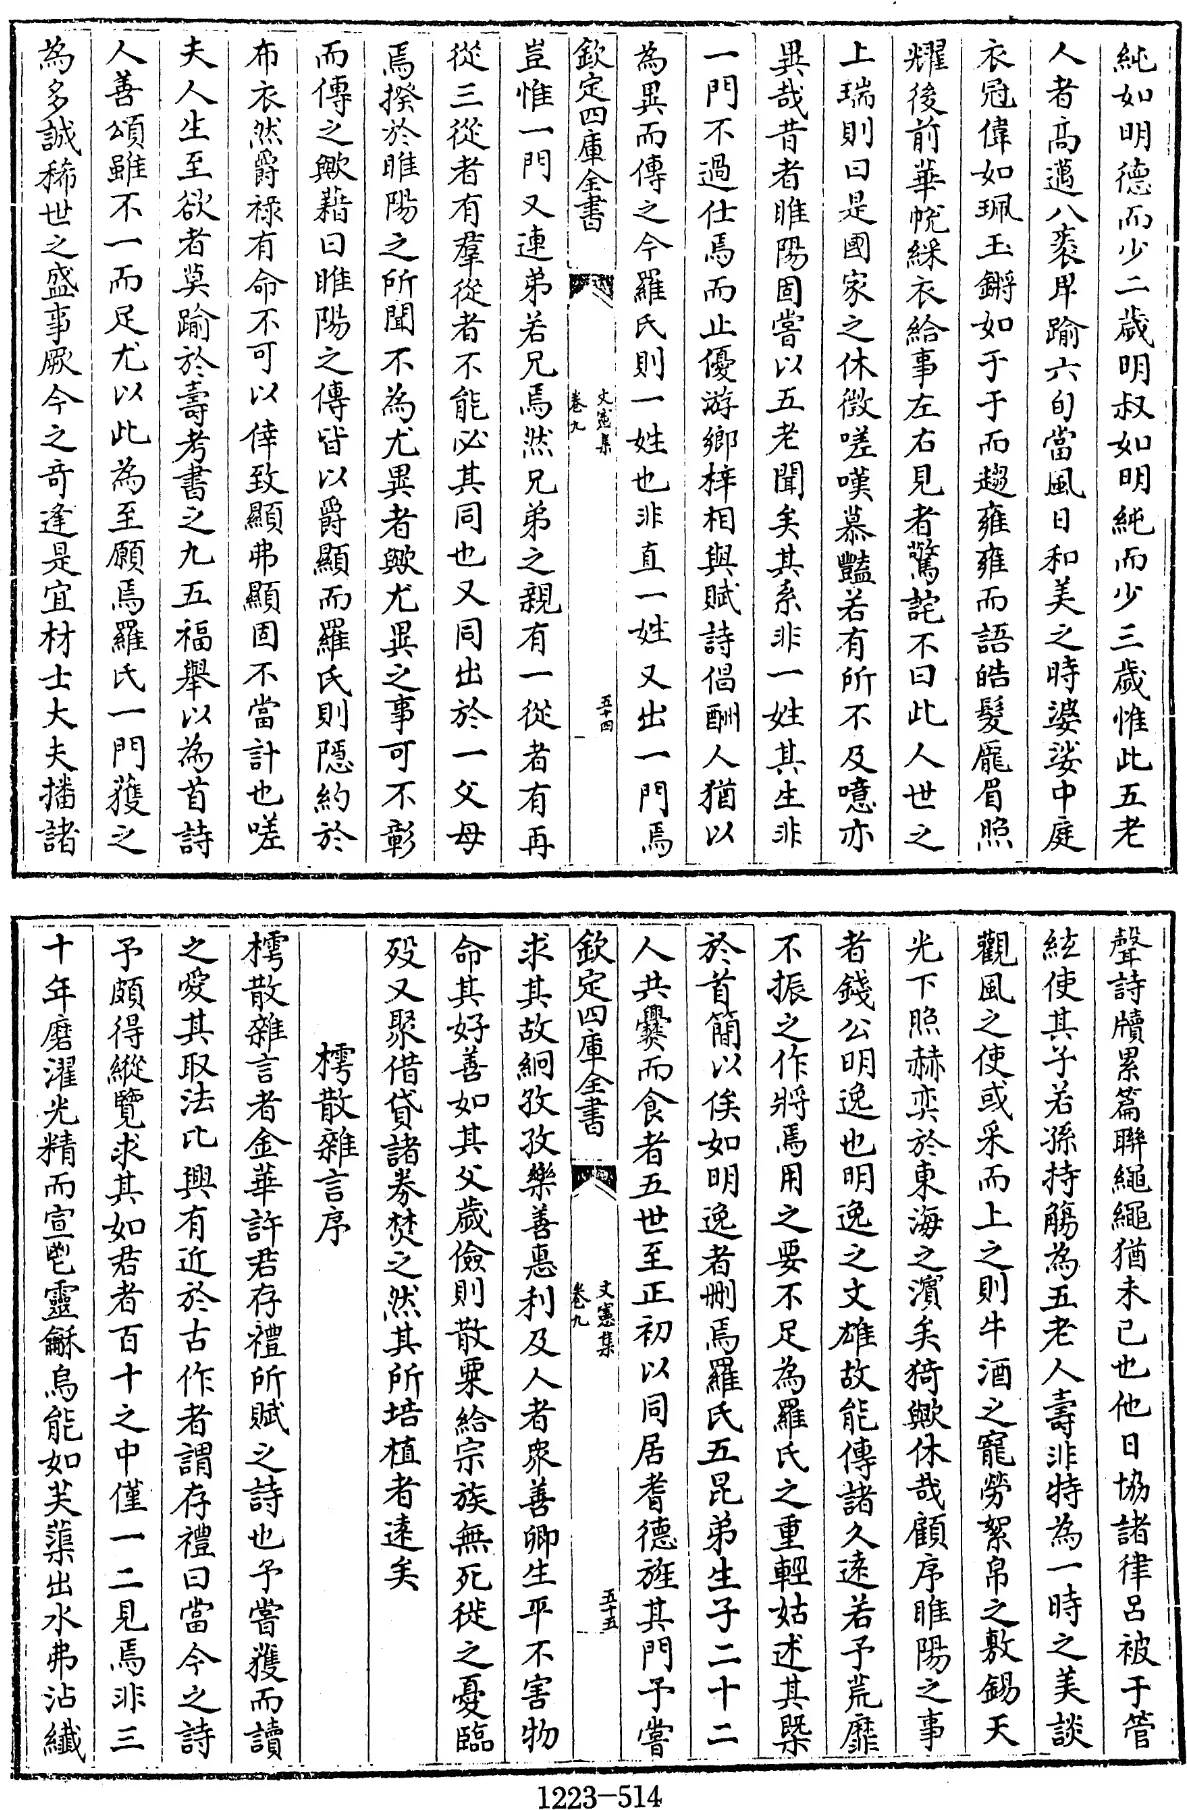 純如明德而少二歲明叔如明純而少三歲惟此五老
人者高邁八袠卑踰六旬當風日和美之時婆娑中庭
衣冠偉如珮玉鏘如于于而趨雍雍而語皓髮龐眉照
耀後前華帨綵衣給事左右見者驚詫不曰此人世之
上瑞則曰是國家之休徵嗟嘆慕豔若有所不及噫亦
異哉昔者睢陽固嘗以五老聞矣其系非一姓其生非
一門不過仕焉而止優游鄉梓相與賦詩倡酬人猶以
為異而傳之今羅氏則一姓也非直一姓又出一門焉
欽定四庫全書
文憲集
卷九
五十四
豈惟一門又連弟若兄焉然兄弟之親有一從者有再
從三從者有羣從者不能必其同也又同出於一父母
焉揆於睢陽之所聞不為尤異者歟尤異之事可不彰
而傳之歟藉曰睢陽之傳皆以爵顯而羅氏則隱約於
布衣然爵祿有命不可以倖致顯弗顯固不當計也嗟
夫人生至欲者莫踰於壽考書之九五福舉以為首詩
人善頌雖不一而足尤以此為至願焉羅氏一門獲之
為多誠稀世之盛事厥今之奇逢是宜材士大夫播諸
聲詩牘累篇聯繩繩猶未已也他日協諸律呂被于管
絃使其子若孫持觴為五老人壽非特為一時之美談
觀風之使或采而上之則牛酒之寵勞絮帛之敷錫天
光下照赫奕於東海之濱矣猗歟休哉顧序睢陽之事
者錢公明逸也明逸之文雄故能傳諸久遠若予荒靡
不振之作將焉用之要不足為羅氏之重輕姑述其槩
於首簡以俟如明逸者刪焉羅氏五昆弟生子二十二
人共爨而食者五世至正初以同居耆德旌其門予嘗
欽定四庫全書
文憲集
卷九
五十五
求其故絅孜孜樂善惠利及人者衆善卿生平不害物
命其好善如其父歲儉則散粟給宗族無死徙之憂臨
歿又聚借貸諸券焚之然其所培植者遠矣
樗散雜言序
樗散雜言者金華許君存禮所賦之詩也予嘗獲而讀
之愛其取法比興有近於古作者謂存禮曰當今之詩
予頗得縱覽求其如君者百十之中僅一二見焉非三
十年磨濯光精而宣鬯靈龢烏能如芙蕖出水弗沾纖
1223—514